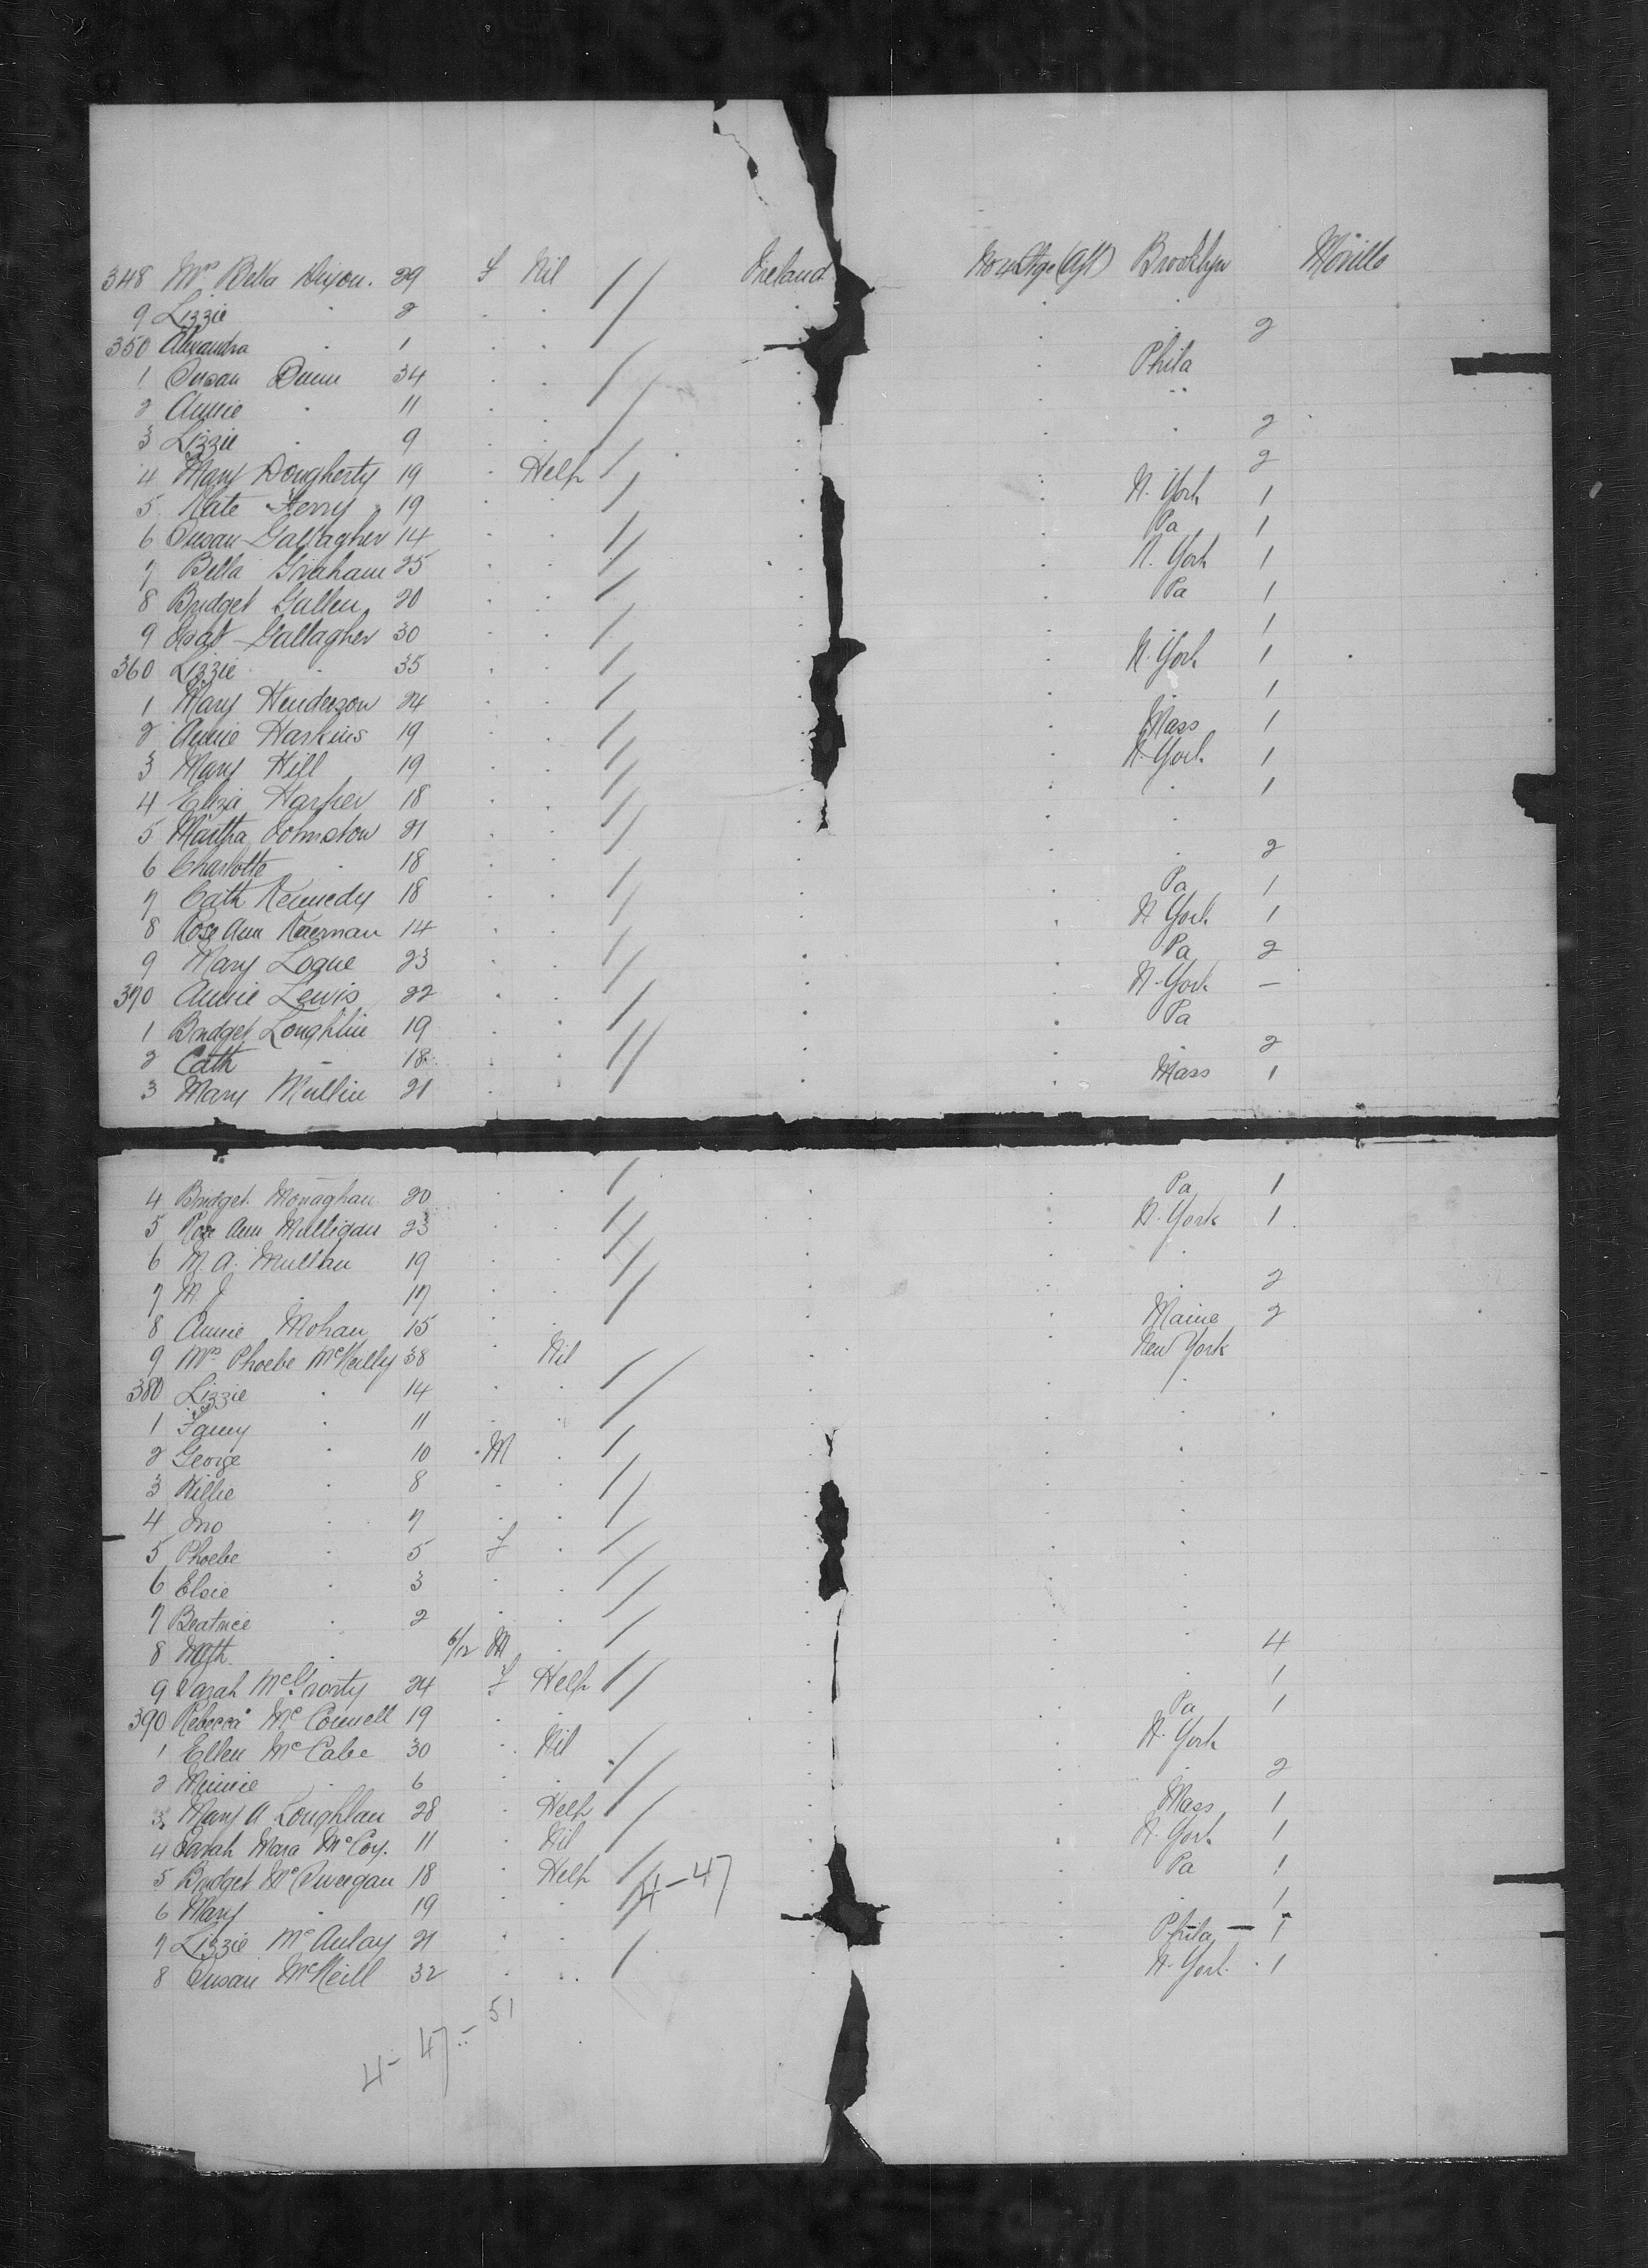 348 Mrs Bella Dixon. 29 F Nil // Ireland Brooklyn Moville
9 Lizzie " 2
350 Alexandra " 1 2
1 Susan Dunn 34 Phila
2 Annie " 11
3 Lizzie " 9 2
4 Mary Dougherty 19 Help 2
5 Kate Ferry 19 N. York 1
6 Susan Gallagher 14 Pa 1
7 Bella Graham 25 N. York 1
8 Bridget Gallen 20 Pa 1
9 Gallagher 30 1
360 Lizzie 35 N. York 1
1 Mary Henderson 24 1
2 Annie Harkins 19 Mass 1
3 Mary Hill 19 N. York 1
4 Eliza Harper 18 1
5 Martha Johnston 21
6 Charlotte " 18 2
7 Cath Kennedy 18 Pa 1
8 Rose Ann Kiernan 14 N York 1
9 Mary Logue 23 Pa 2
370 Annie Lewis 22 N. York —
1 Bridget Loughlin 19 Pa
2 Cath — 18 2
3 Mary Mullin 21 Mass 1
4 Bridget Monaghan 20 Pa 1
5 Rose Ann Mulligan 23 N. York 1
6 M. A. Mullan 19
7 M J " 17 2
8 Annie Mohan 15 Maine 2
9 Mrs Phoebe McNeilly 38 Nil New York
380 Lizzie " 14
1 Fanny " 11
2 George " 10 M
3 Willie " 8
4 Jno " 7
5 Phoebe " 5 F
6 Elsie " 3
7 Beatrice " 2
8 " 6/12 M 4
9 Sarah McGrorty 24 F Help 1
390 Rebecca McConnell 19 Pa 1
1 Ellen McCabe 30 Nil N. York
2 Minnie " 6 2
3 Mary A Loughlan 28 Help Mass 1
4 Sarah Mara McCoy. 11 Nil N. York 1
5 Bridget Mc 18 Help 4-47 Pa 1
6 Mary " 19 1
7 Lizzie McAulay 21 Phila — 1
8 Susan McNeill 32 N. York 1
4-47-51